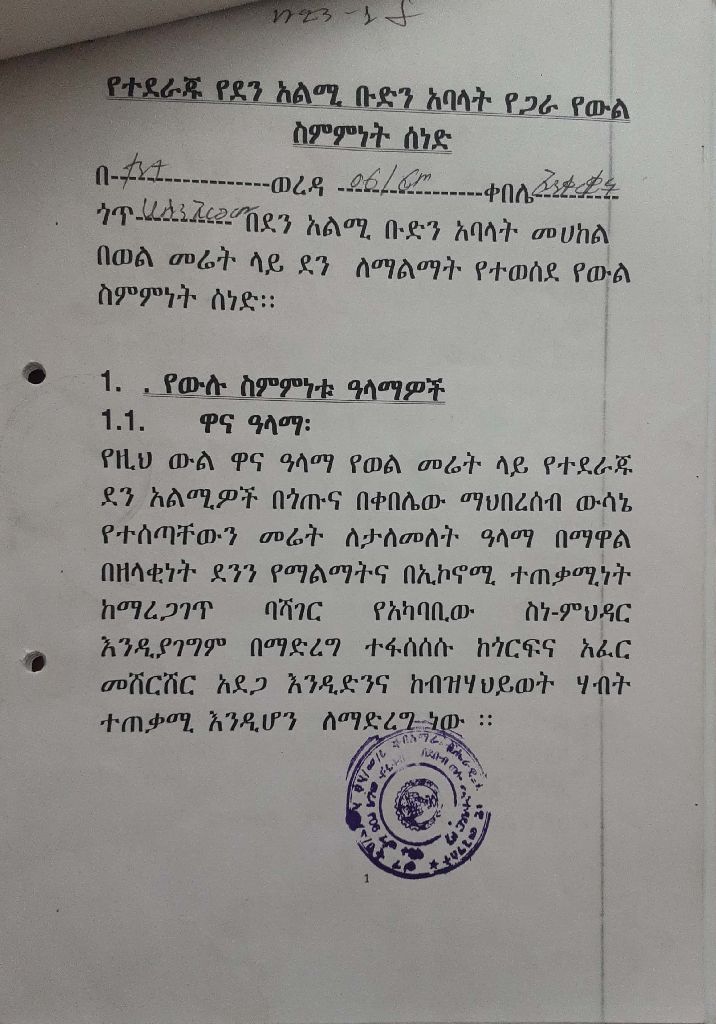 የተደራጁ የደን አልሚ ቡድን አባላት የጋራ የውል
ስምምነት ሰነድ
በ------------------ወረዳ 06/ ----------------ቀበሌ----------
ጎጥ------------ በደን አልሚ ቡድን አባላት መሀከል
በወል መሬት ላይ ደን ለማልማት የተወሰደ የውል
ስምምነት ሰነድ፡፡
1. . የውሉ ስምምነቱ ዓላማዎች
1.1. ዋና ዓላማ፡
የዚህ ውል ዋና ዓላማ የወል መሬት ላይ የተደራጁ
ደን አልሚዎች በጎጡና በቀበሌው ማህበረሰብ ውሳኔ
የተሰጣቸውን መሬት ለታለመለት ዓላማ በማዋል
በዘላቂነት ደንን የማልማትና በኢኮኖሚ ተጠቃሚነት
ከማረጋገጥ ባሻገር የአካባቢው ስነ-ምህዳር
እንዲያገግም በማድረግ ተፋሰሰሱ ከጎርፍና አፈር
መሸርሸር አደጋ እንዲድንና ከብዝሃህይወት ሃብት
ተጠቃሚ እንዲሆን ለማድረግ ነው ፡፡
1